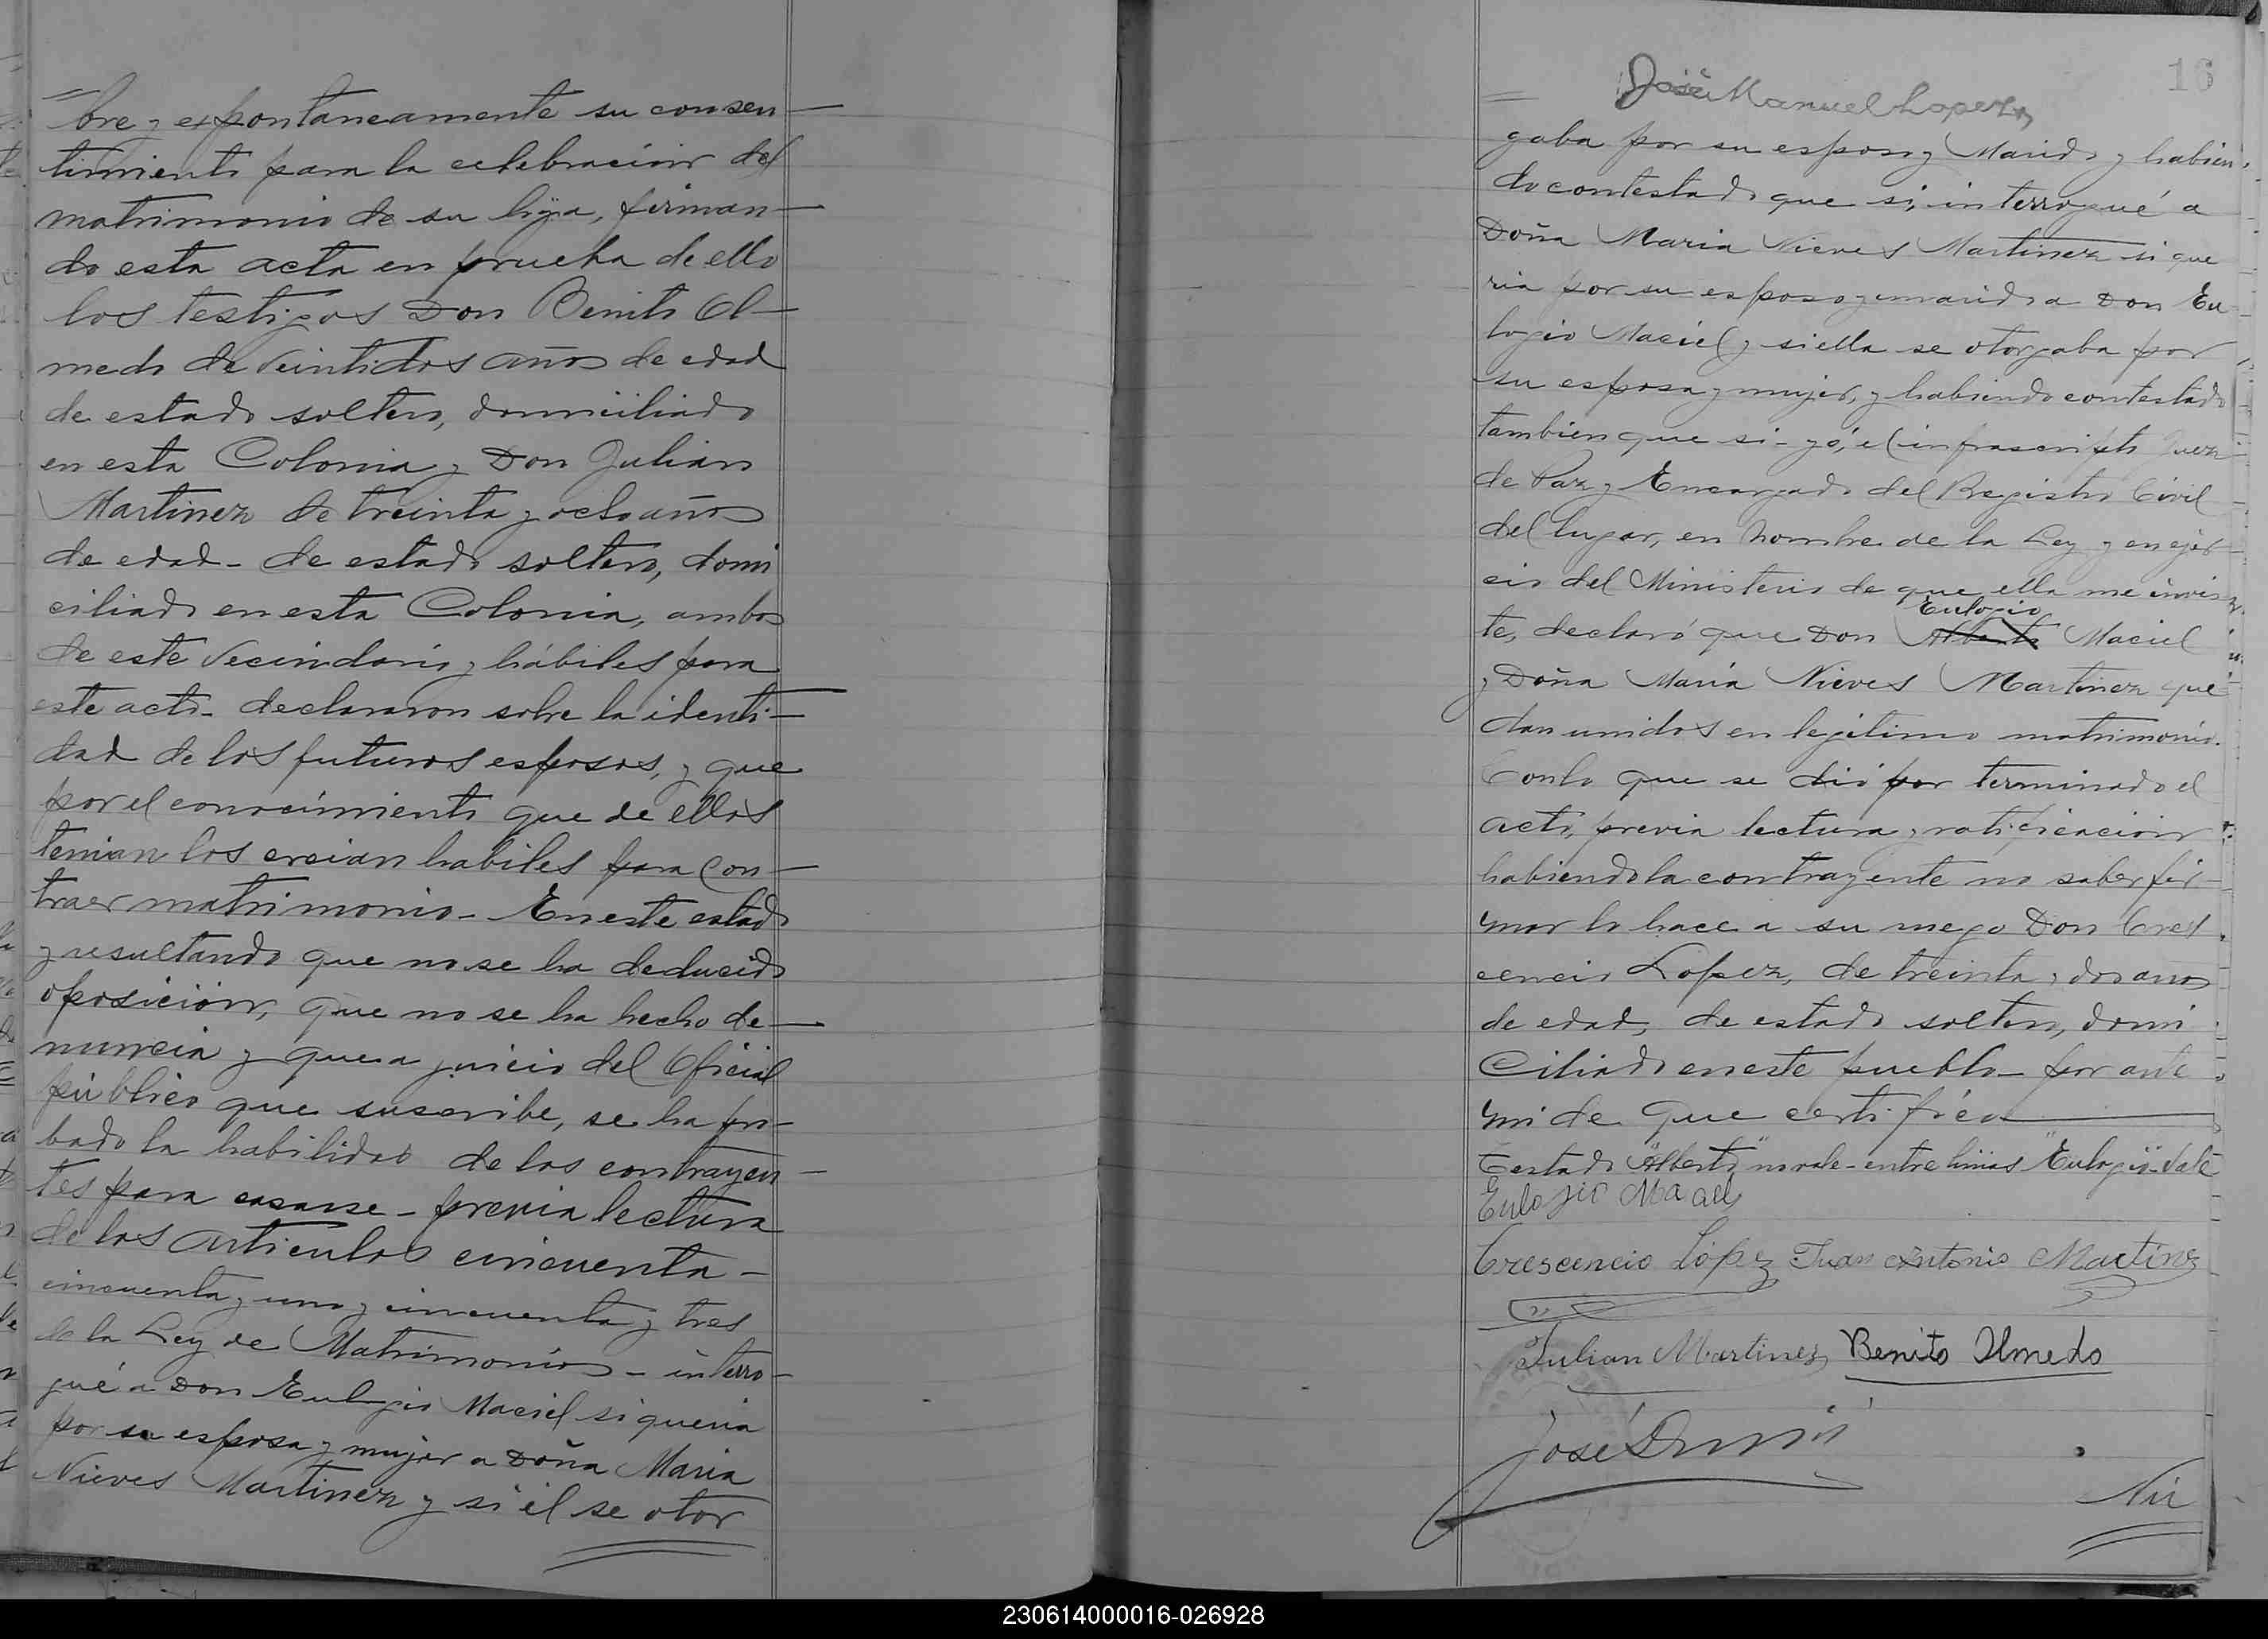 bre y expontaneamente su consen
timiento para la celebración del
matrimonio de su hija, firman-
do esta acta en prueba de ello
los testigos Don Benito Ol-
medo de veintidos años de edad
de estado soltero, domiciliado
en esta Colonia y Don Julian
Martinez de treinta y ocho años
de edad - de estado soltero, domi
ciliado en esta Colonia, ambos
de este vecindario y hábiles para
este acto - declararon sobre la identi-
dad de los futuros esposos, y que
por el conocimiento que de ellos
tenian los creian habiles para con-
traer matrimonio - En este estado
y resultando que no se ha deducido
oposición, que no se ha hecho de-
nuncia y que a juicio del Oficial
público que suscribe, se ha pro-
bado la habilidad de los contrayen-
tes para casarse - previa lectura
de los articulos cincuenta -
cincuenta y uno y cincuenta y tres
de la Ley de Matrimonio - interro-
gué a Don Eulogio Maciel si queria
por su esposa y mujer a Doña Maria
Nieves Martinez y si él se otor
16
José Manuel Lopez
gaba por su esposo y Marido y habien-
do contestado que si, interrogué a
Doña Maria Nieves Martinez si que
ria por su esposo y marido a Don Eu
logio Maciel y si ella se otorgaba por
su esposa y mujer, y habiendo contestado
tambien que si - yó, el infrascripto Juez
de Paz y Encargado del Registro Civil
del lugar, en nombre de la Ley y en ejer-
cio del Ministerio de que ella me invis
Eulogio
te, declaró que Don Alberto Maciel
y Doña Maria Nieves Martinez que
dan unidos en legítimo matrimonio.
Con lo que se dió por terminado el
acto, previa lectura y ratificación
habiendo la contrayente no saber fir-
mar lo hace a su ruego Don Cres
cencio Lopez, de treinta y dos años
de edad, de estado soltero, domi
ciliado en este pueblo - por ante
mi de que certifico
Testado "Alberto" no vale - entre linias "Eulogio" - vale
Eulogio Maciel
Crescencio López Juan Antonio Martinez
Julian Martinez Benito Olmedo
José
230614000016-026928